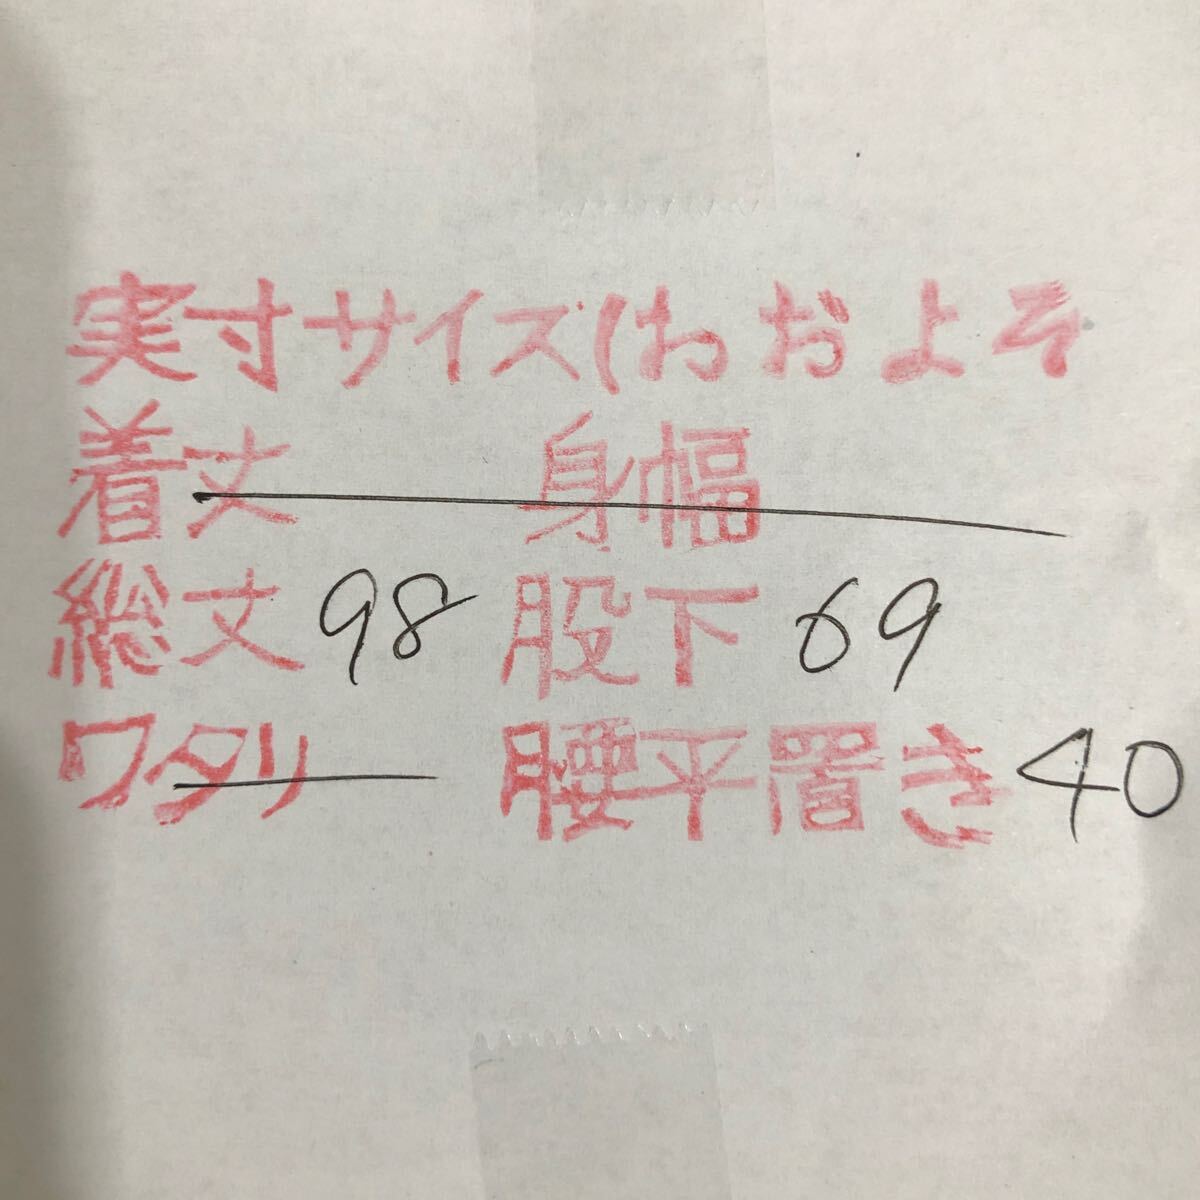 実寸サイズ(おおよそ
着丈 身幅
総丈 98 股下 69
ワタリ 腰平置き 40